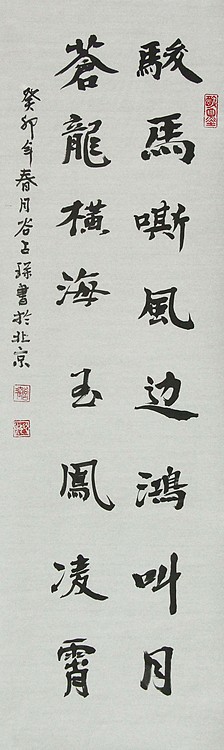 駿馬嘶風边鴻叫月
蒼龍橫海玉鳳凌霄
癸卯年春月谷子琛書於北京